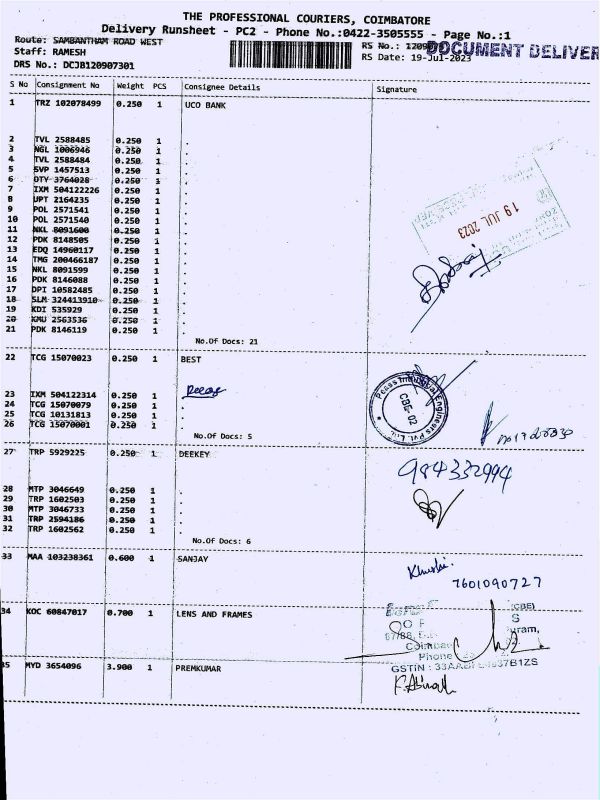 THE PROFESSIONAL COURIERS, COIMBATORE
Delivery Runsheet - PC2 - Phone No.:0422-3505555 - Page No.:1
Route: SAMBANTHAM ROAD WEST
RS No.: 120907
DOCUMENT DELIVER
Staff: RAMESH
RS Date: 19-Jul-2023
DRS No.: DCJB120907301
S No Consignment No Weight PCS Consignee Details Signature
1 TRZ 102078499 0.250 1 UCO BANK
2 TVL 2588485 0.250 1 .
3 NGL 1006946 0.250 1 .
4 TVL 2588484 0.250 1 .
5 SVP 1457513 0.250 1 .
6 OTY 3764028 0.250 1 .
7 IXM 504122226 0.250 1 .
8 UPT 2164235 0.250 1 .
9 POL 2571541 0.250 1 .
10 POL 2571540 0.250 1 .
11 NKL 8091600 0.250 1 .
12 PDK 8148505 0.250 1 .
13 EDQ 14960117 0.250 1 .
14 TMG 200466187 0.250 1 .
15 NKL 8091599 0.250 1 .
16 PDK 8146088 0.250 1 .
17 DPI 10582485 0.250 1 .
18 SLM 324413910 0.250 1 .
19 KDI 535929 0.250 1 .
20 KMU 2563536 0.250 1 .
21 PDK 8146119 0.250 1 .
19 JUL 2023
No.Of Docs: 21
22 TCG 15070023 0.250 1 BEST
23 IXM 504122314 0.250 1
24 TCG 15070079 0.250 1 .
25 TCG 10131813 0.250 1 .
26 TCG 15070001 0.250 1 .
Engineers Pvt.
CBE- 02
No.Of Docs: 5
27 TRP 5929225 0.250 1 DEEKEY
984332994
28 MTP 3046649 0.250 1 .
29 TRP 1602503 0.250 1 .
30 MTP 3046733 0.250 1 .
31 TRP 2594186 0.250 1 .
32 TRP 1602562 0.250 1 .
No.Of Docs: 6
33 MAA 103238361 0.600 1 SANJAY
Khushi.
7601090727
34 KOC 60847017 0.700 1 LENS AND FRAMES
(CBE)
S
67/88,
uram,
Coimba
Phone
35 MYD 3654096 3.900 1 PREMKUMAR
GSTIN : 33AA
37B1ZS